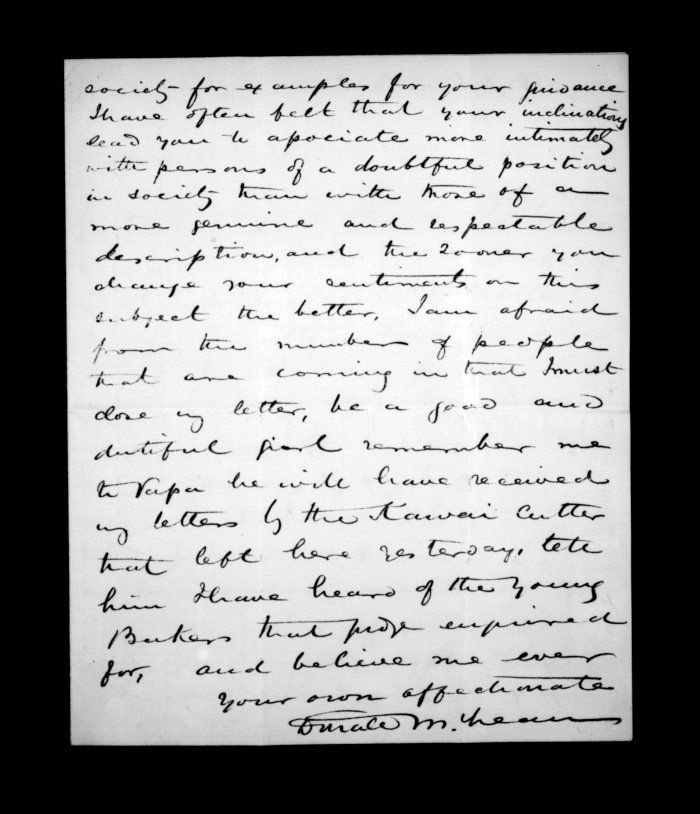 society for examples for your guidance
I have often felt that your inclinations
lead you to associate more intimately
with persons of a doubtful position
in society than with those of a
more genuine and respectable
description, and the sooner you
change your sentiments on this
subject the better, I am afraid
from the number of people
that are coming in that I must
close my letter, be a good and
dutiful girl remember me
to Papa he will have received
my letters by the Kawai Cutter
that left here yesterday, tell
him I have heard of the young
Bakers that Judge enquired
for, and believe me ever
your own affectionate
Donald McLean